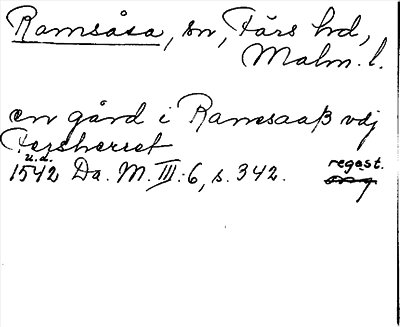 Ramsåsa, sn, Färs hd,
Malm. l.
en gård i Ramsaaß vdj
Fersherret
u.d.
1542 Da. M. III:6, s. 342. regest.